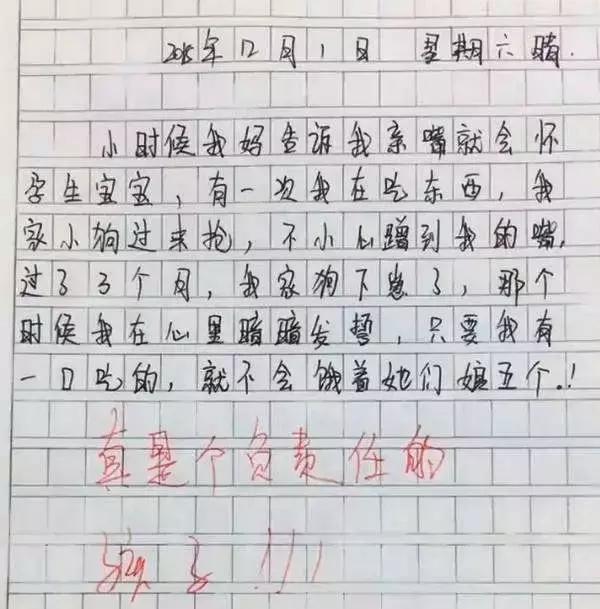 2018年12月1日 星期六晴.
小时候我妈告诉我亲嘴就会怀
孕生宝宝，有一次我在吃东西，我
家小狗过来抢，不小心蹭到我的嘴.
过了3个月，我家狗下崽了，那个
时候我在心里暗暗发誓，只要我有
一口吃的，就不会饿着她们娘五个.!
真是个负责任的
孩子!!!